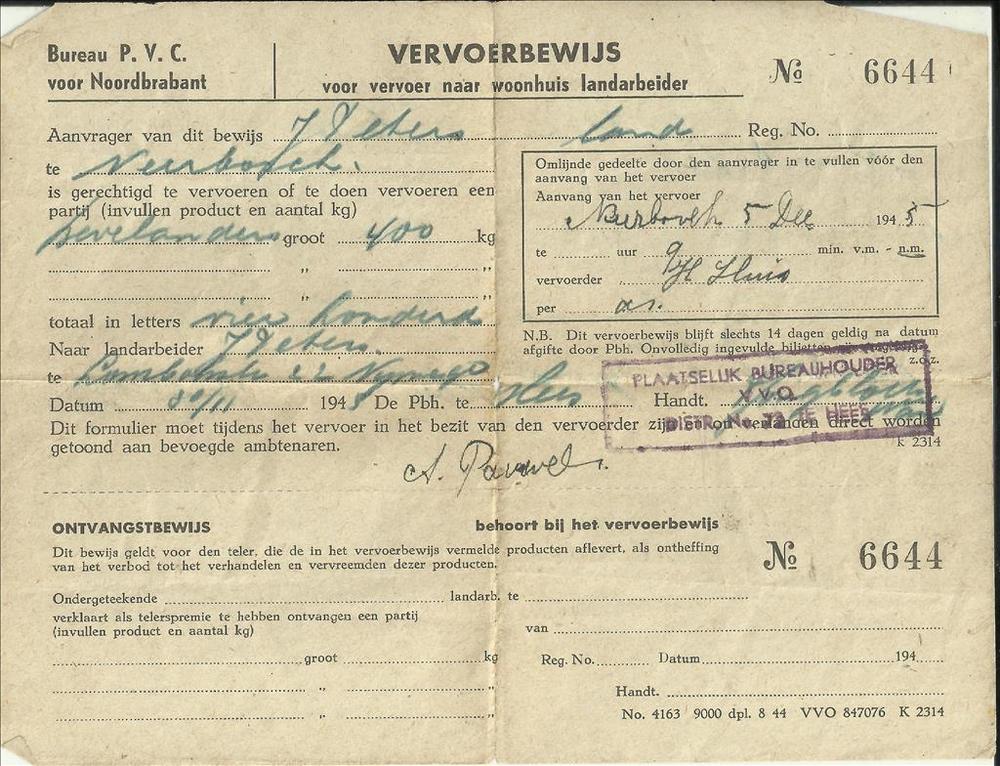 Bureau P. V. C.
voor Noordbrabant
VERVOERBEWIJS
voor vervoer naar woonhuis landarbeider
No 6644
Aanvrager van dit bewijs J Peters land Reg. No.
te Neerbosch.
is gerechtigd te vervoeren of te doen vervoeren een
partij (invullen product en aantal kg)
bevelanders groot 400 kg
"  "
"  "
totaal in letters vier honderd
Naar landarbeider J Peters.
te
Datum 30/11 1945 De Pbh. te Hees Handt.
Omlijnde gedeelte door den aanvrager in te vullen vóór den
aanvang van het vervoer
Aanvang van het vervoer
Neerbosch 5 Dec 1945
te uur 9 min. v.m. - n.m.
vervoerder
per as.
N.B. Dit vervoerbewijs blijft slechts 14 dagen geldig na datum
afgifte door Pbh. Onvolledig ingevulde biljetten zijn
z.o.z.
PLAATSELIJK BUREAUHOUDER
V.V.O.
DISTR. No. 72 TE HEES
Dit formulier moet tijdens het vervoer in het bezit van den vervoerder zijn en op verlangen direct worden
getoond aan bevoegde ambtenaren.
K 2314
A.
ONTVANGSTBEWIJS
behoort bij het vervoerbewijs
Dit bewijs geldt voor den teler, die de in het vervoerbewijs vermelde producten aflevert, als ontheffing
van het verbod tot het verhandelen en vervreemden dezer producten.
No 6644
Ondergeteekende landarb. te
verklaart als telerspremie te hebben ontvangen een partij
(invullen product en aantal kg)
van
groot kg
Reg. No. Datum 194
"  "
Handt.
"  "
No. 4163 9000 dpl. 8 44 VVO 847076 K 2314